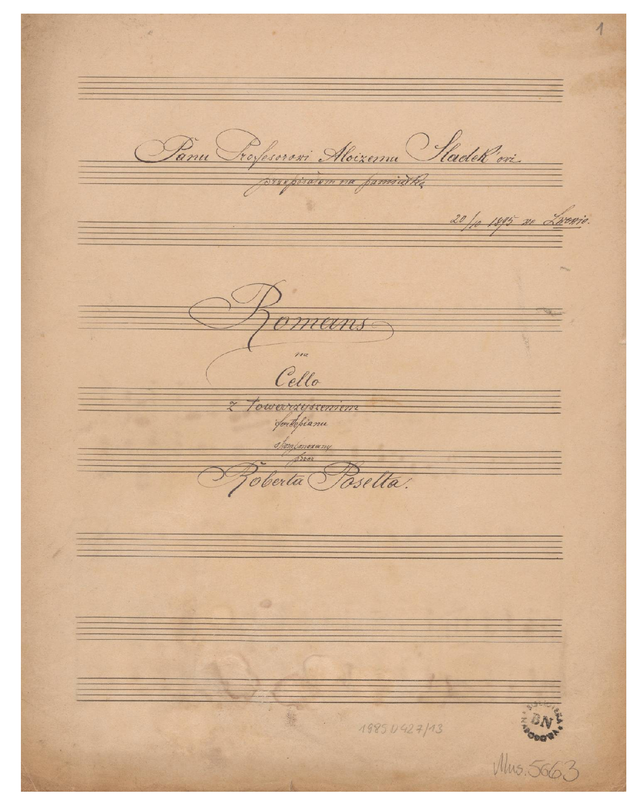 1
Panu Profesorowi Aloizemu Sladek'owi
przepisałem na pamiątkę
20/10 1895 we Lwowie.
Romans
na
Cello
z towarzyszeniem
fortepianu
skomponowany
przez
Roberta Posełta.
BIBLIOTEKA NARODOWA
BN
1985 N 427/13
Mus. 5663